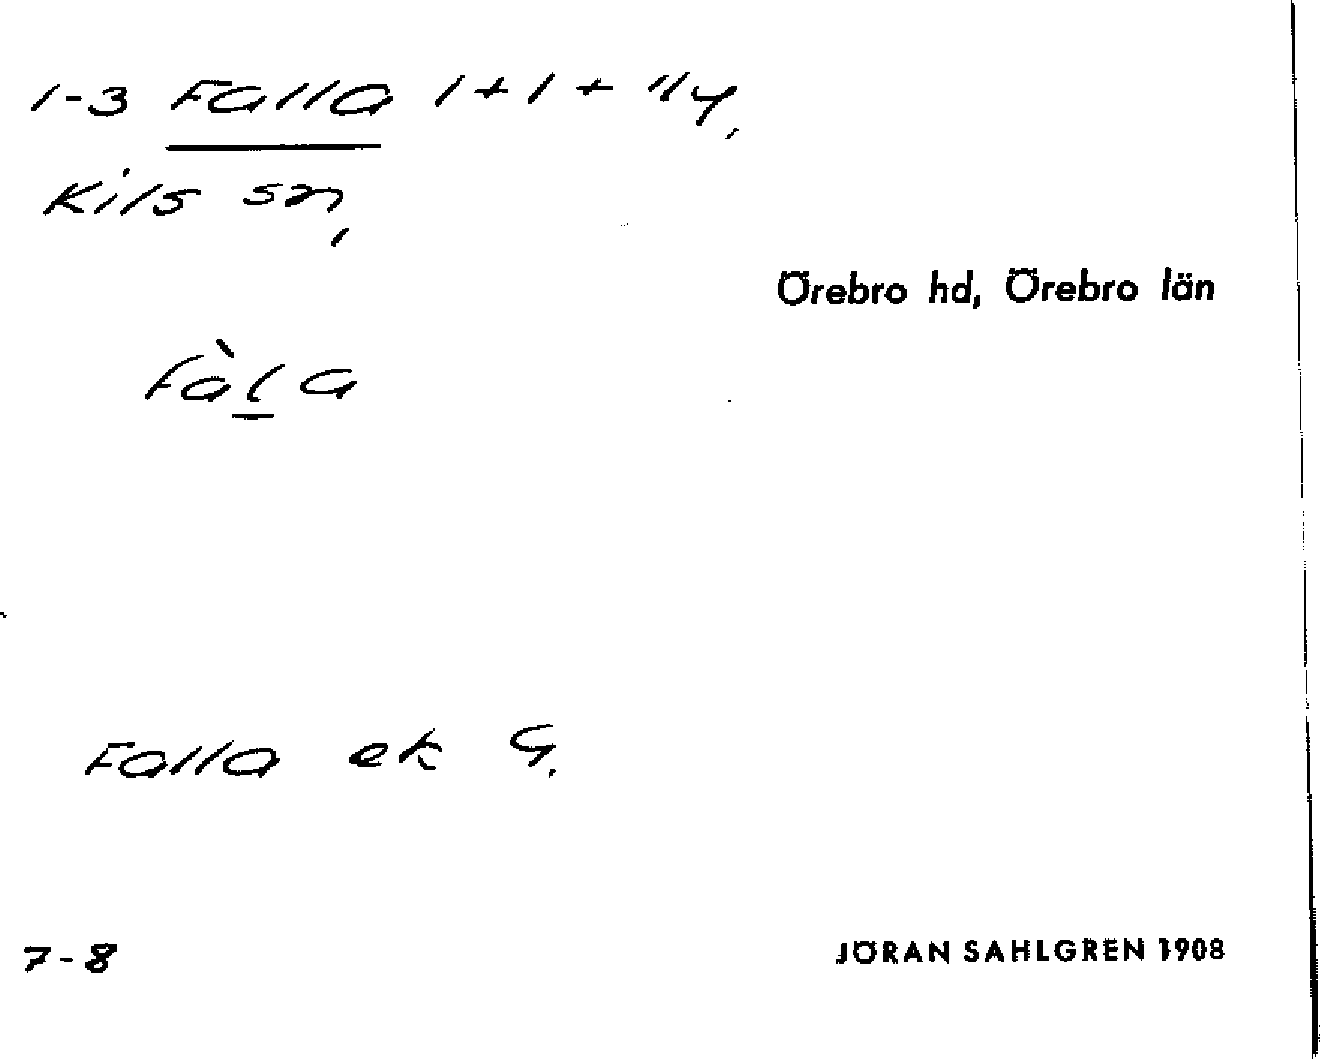 1-3 Falla 1+1+1/4,
Kils sn,
Örebro hd, Örebro län
fàla
Falla ek G.
7-8
JÖRAN SAHLGREN 1908